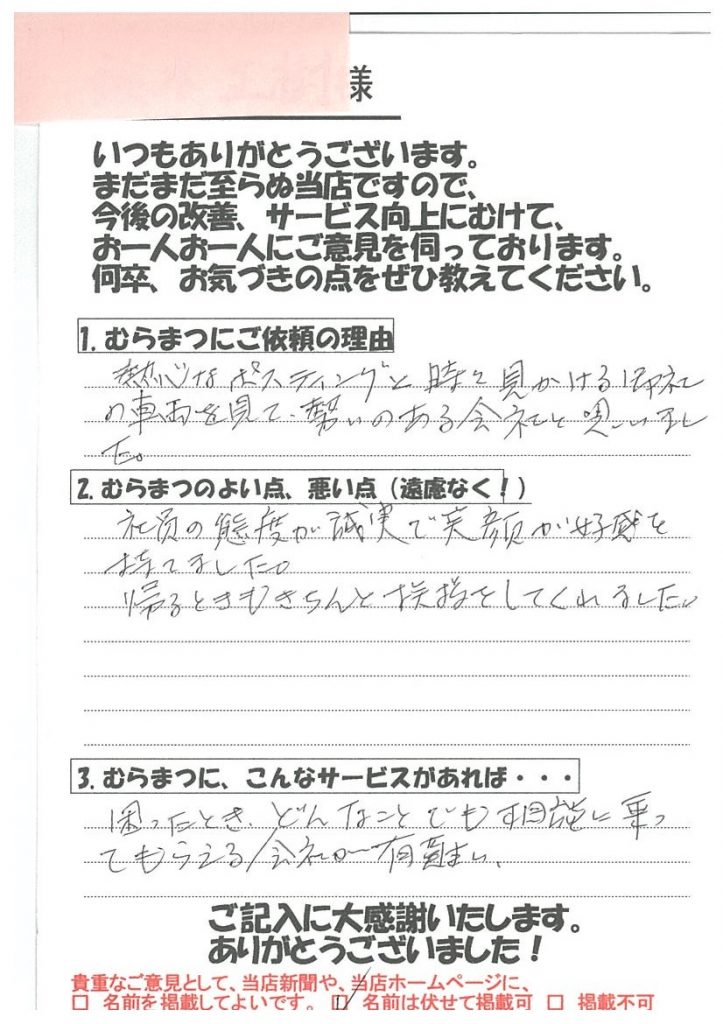 様
いつもありがとうございます。
まだまだ至らぬ当店ですので、
今後の改善、サービス向上にむけて、
お一人お一人にご意見を伺っております。
何卒、お気づきの点をぜひ教えてください。
1. むらまつにご依頼の理由
熱心なポスティングと時々見かける御社
の車両を見て、勢いのある会社と思いまし
た。
2. むらまつのよい点、悪い点（遠慮なく！）
社員の態度が誠実で笑顔が好感を
持てました。
帰るときもきちんと挨拶をしてくれました。
3. むらまつに、こんなサービスがあれば・・・
困ったとき、どんなことでも相談に乗っ
てもらえる会社が有難い、
ご記入に大感謝いたします。
ありがとうございました！
貴重なご意見として、当店新聞や、当店ホームページに、
□ 名前を掲載してよいです。 □ 名前は伏せて掲載可 □ 掲載不可